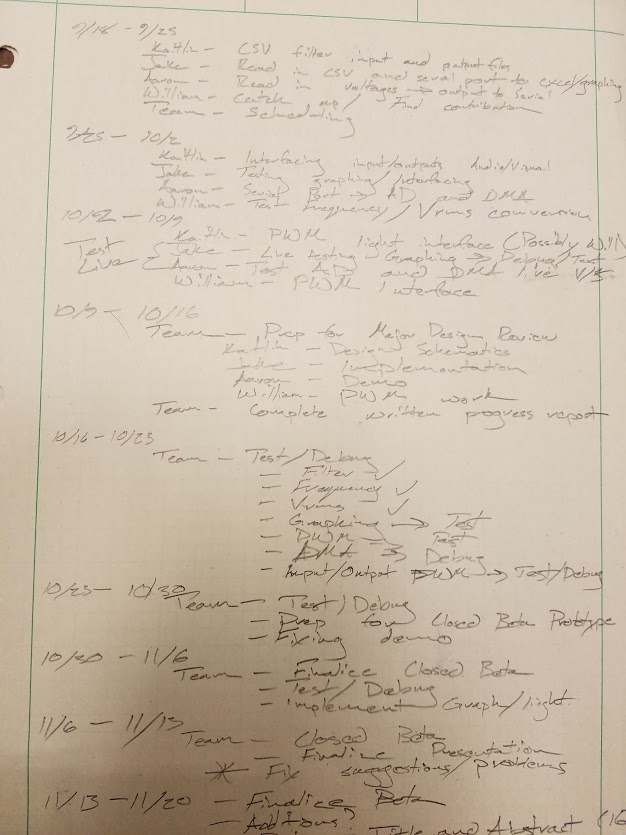 9/18 - 9/25
Kaitlin - CSV filter input and output files
Jake - Read in CSV and serial port to excel/graphing
Aaron - Read in voltages → output to Serial
William - Catch up / Find contribution
Team - Scheduling
9/25 - 10/2
Kaitlin - Interfacing input/outputs Audio/Visual
Jake - Testing graphing/interfacing
Aaron - Serial Port → AD and DMA
William - Test Frequency/Vrms conversion
10/2 - 10/9
Kaitlin - PWM light interface (Possibly Will)
Test Live { Jake - Live testing Graphing → Debug/Test
Aaron - Test AD and DMA live
William - PWM Interface
10/9 - 10/16
Team - Prep for Major Design Review
Kaitlin - Design Schematics
Jake - Implementation
Aaron - Demo
William - PWM work
Team - Complete written progress report
10/16 - 10/23
Team - Test/Debug
- Filter ✓
- Frequency ✓
- Vrms ✓
- Graphing → Test
- PWM → Test
- DMA → Debug
- Input/Output PWM → Test/Debug
10/23 - 10/30
Team - Test/Debug
- Prep for Closed Beta Prototype
- Fixing demo
10/30 - 11/6
Team - Finalize Closed Beta
- Test/Debug
- implement Graph/light
11/6 - 11/13
Team - Closed Beta
- Finalize Presentation
* Fix suggestions/problems
11/13 - 11/20 - Finalize Beta
- Additions?
Title and Abstract (16